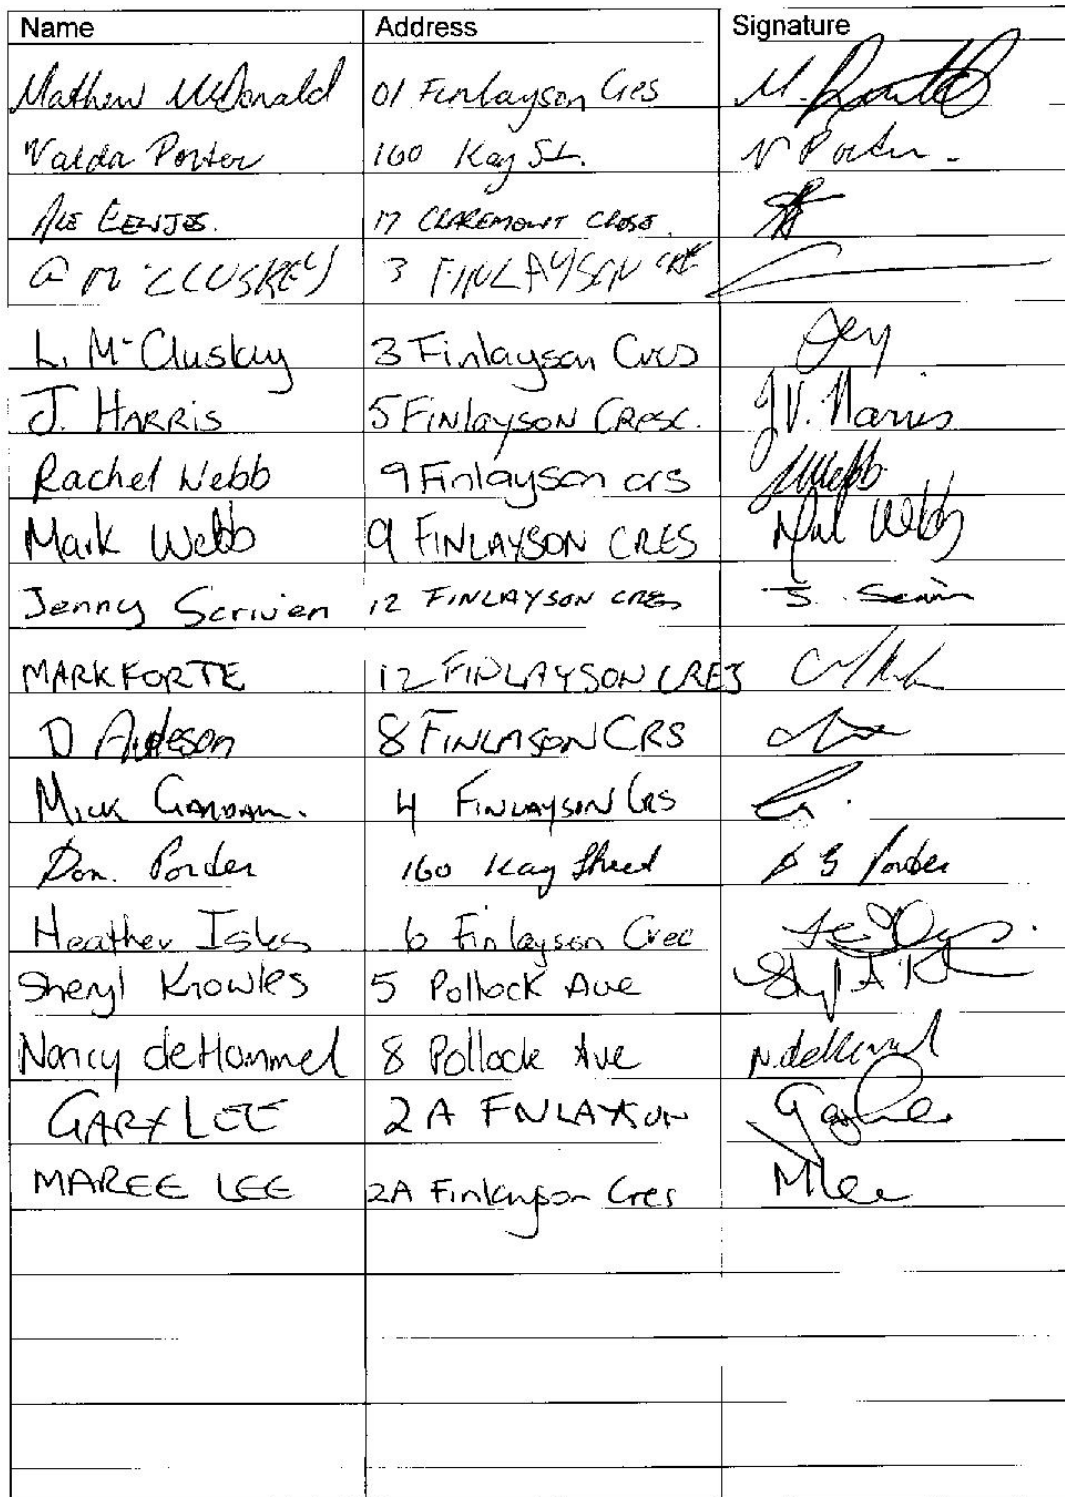 Name Address Signature
Mathew McDonald 01 Finlayson Cres M.
Valda Porter 160 Kay St. V Porter.
17 CLAREMONT CLOSE.
McCLUSKEY 3 FINLAYSON CRE
L. McCluskey 3 Finlayson Cres
J. HARRIS 5 FINlAYSON CRESC. J.V. Harris
Rachel Webb 9 Finlayson crs Webb
Mark Webb 9 FINLAYSON CRES Webb
Jenny Scriven 12 FINLAYSON CRES J.
MARK FORTE 12 FINLAYSON CRES
D 8 FINLASON CRS
MICK 4 FINLAYSON CRS
Don. Porder 160 Kay Street Porder
Heather Isles 6 Finlayson Cree
Sheryl Knowles 5 Pollock Ave
Nancy deHommel 8 Pollock Ave
GARY LEE 2A FNLAYSON
MAREE LEE 2A Finlayson Cres MLee